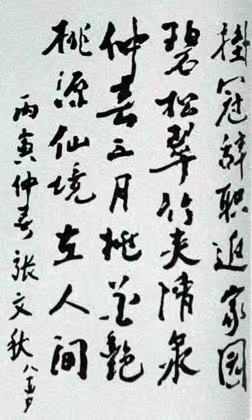 挂冠辞职返家园
碧松翠竹夹清泉
仲春二月桃花艳
桃源仙境在人间
丙寅仲春 张文秋 八十四岁